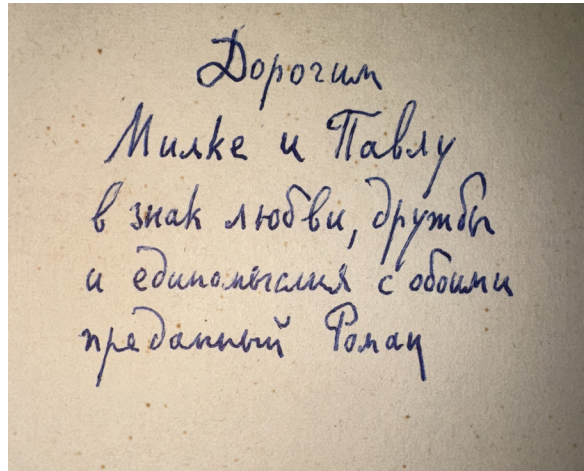 Дорогим
Милке и Павлу
в знак любви, дружбы
и единомыслия с обоими
преданный Роман